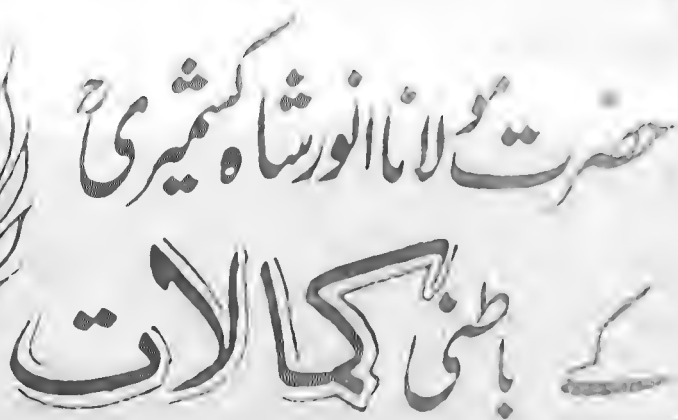 حضرت مولانا انور شاہ کشمیریؒ
کے باطنی کمالات